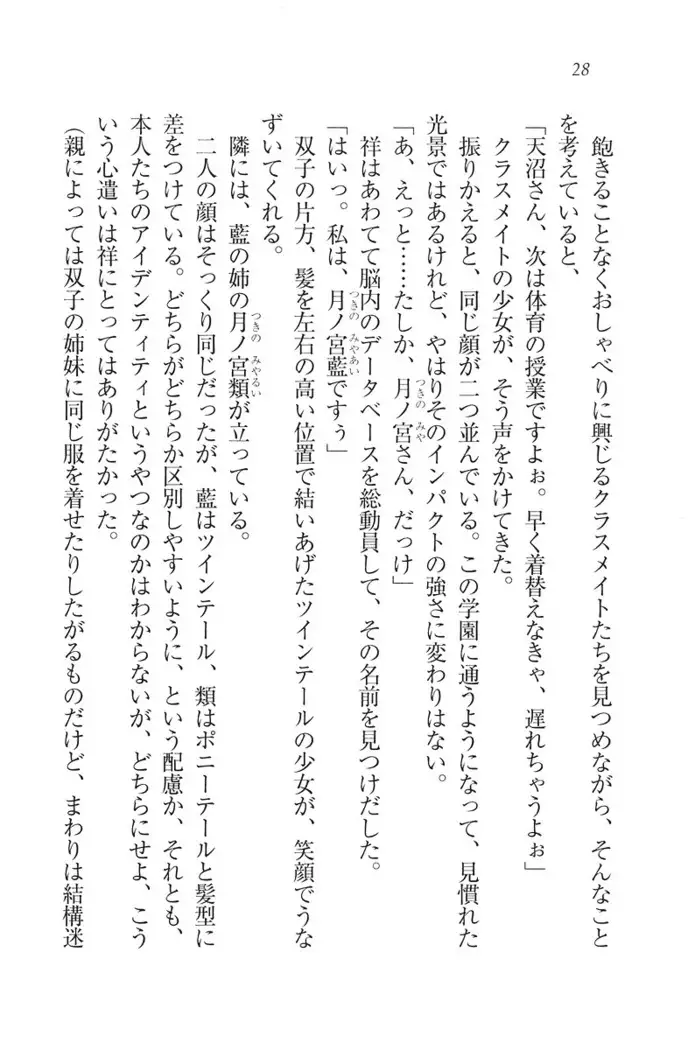 28
飽きることなくおしゃべりに興じるクラスメイトたちを見つめながら、そんなこと
を考えていると、
「天沼さん、次は体育の授業ですよぉ。早く着替えなきゃ、遅れちゃうよぉ」
クラスメイトの少女が、そう声をかけてきた。
振りかえると、同じ顔が二つ並んでいる。この学園に通うようになって、見慣れた
光景ではあるけれど、やはりそのインパクトの強さに変わりはない。
「あ、えっと……たしか、月ノ宮さん、だっけ」
祥はあわてて脳内のデータベースを総動員して、その名前を見つけだした。
「はいっ。私は、月ノ宮藍ですぅ」
双子の片方、髪を左右の高い位置で結いあげたツインテールの少女が、笑顔でうな
ずいてくれる。
隣には、藍の姉の月ノ宮類が立っている。
二人の顔はそっくり同じだったが、藍はツインテール、類はポニーテールと髪型に
差をつけている。どちらがどちらか区別しやすいように、という配慮か、それとも、
本人たちのアイデンティティというやつなのかはわからないが、どちらにせよ、こう
いう心遣いは祥にとってはありがたかった。
(親によっては双子の姉妹に同じ服を着せたりしたがるものだけど、まわりは結構迷